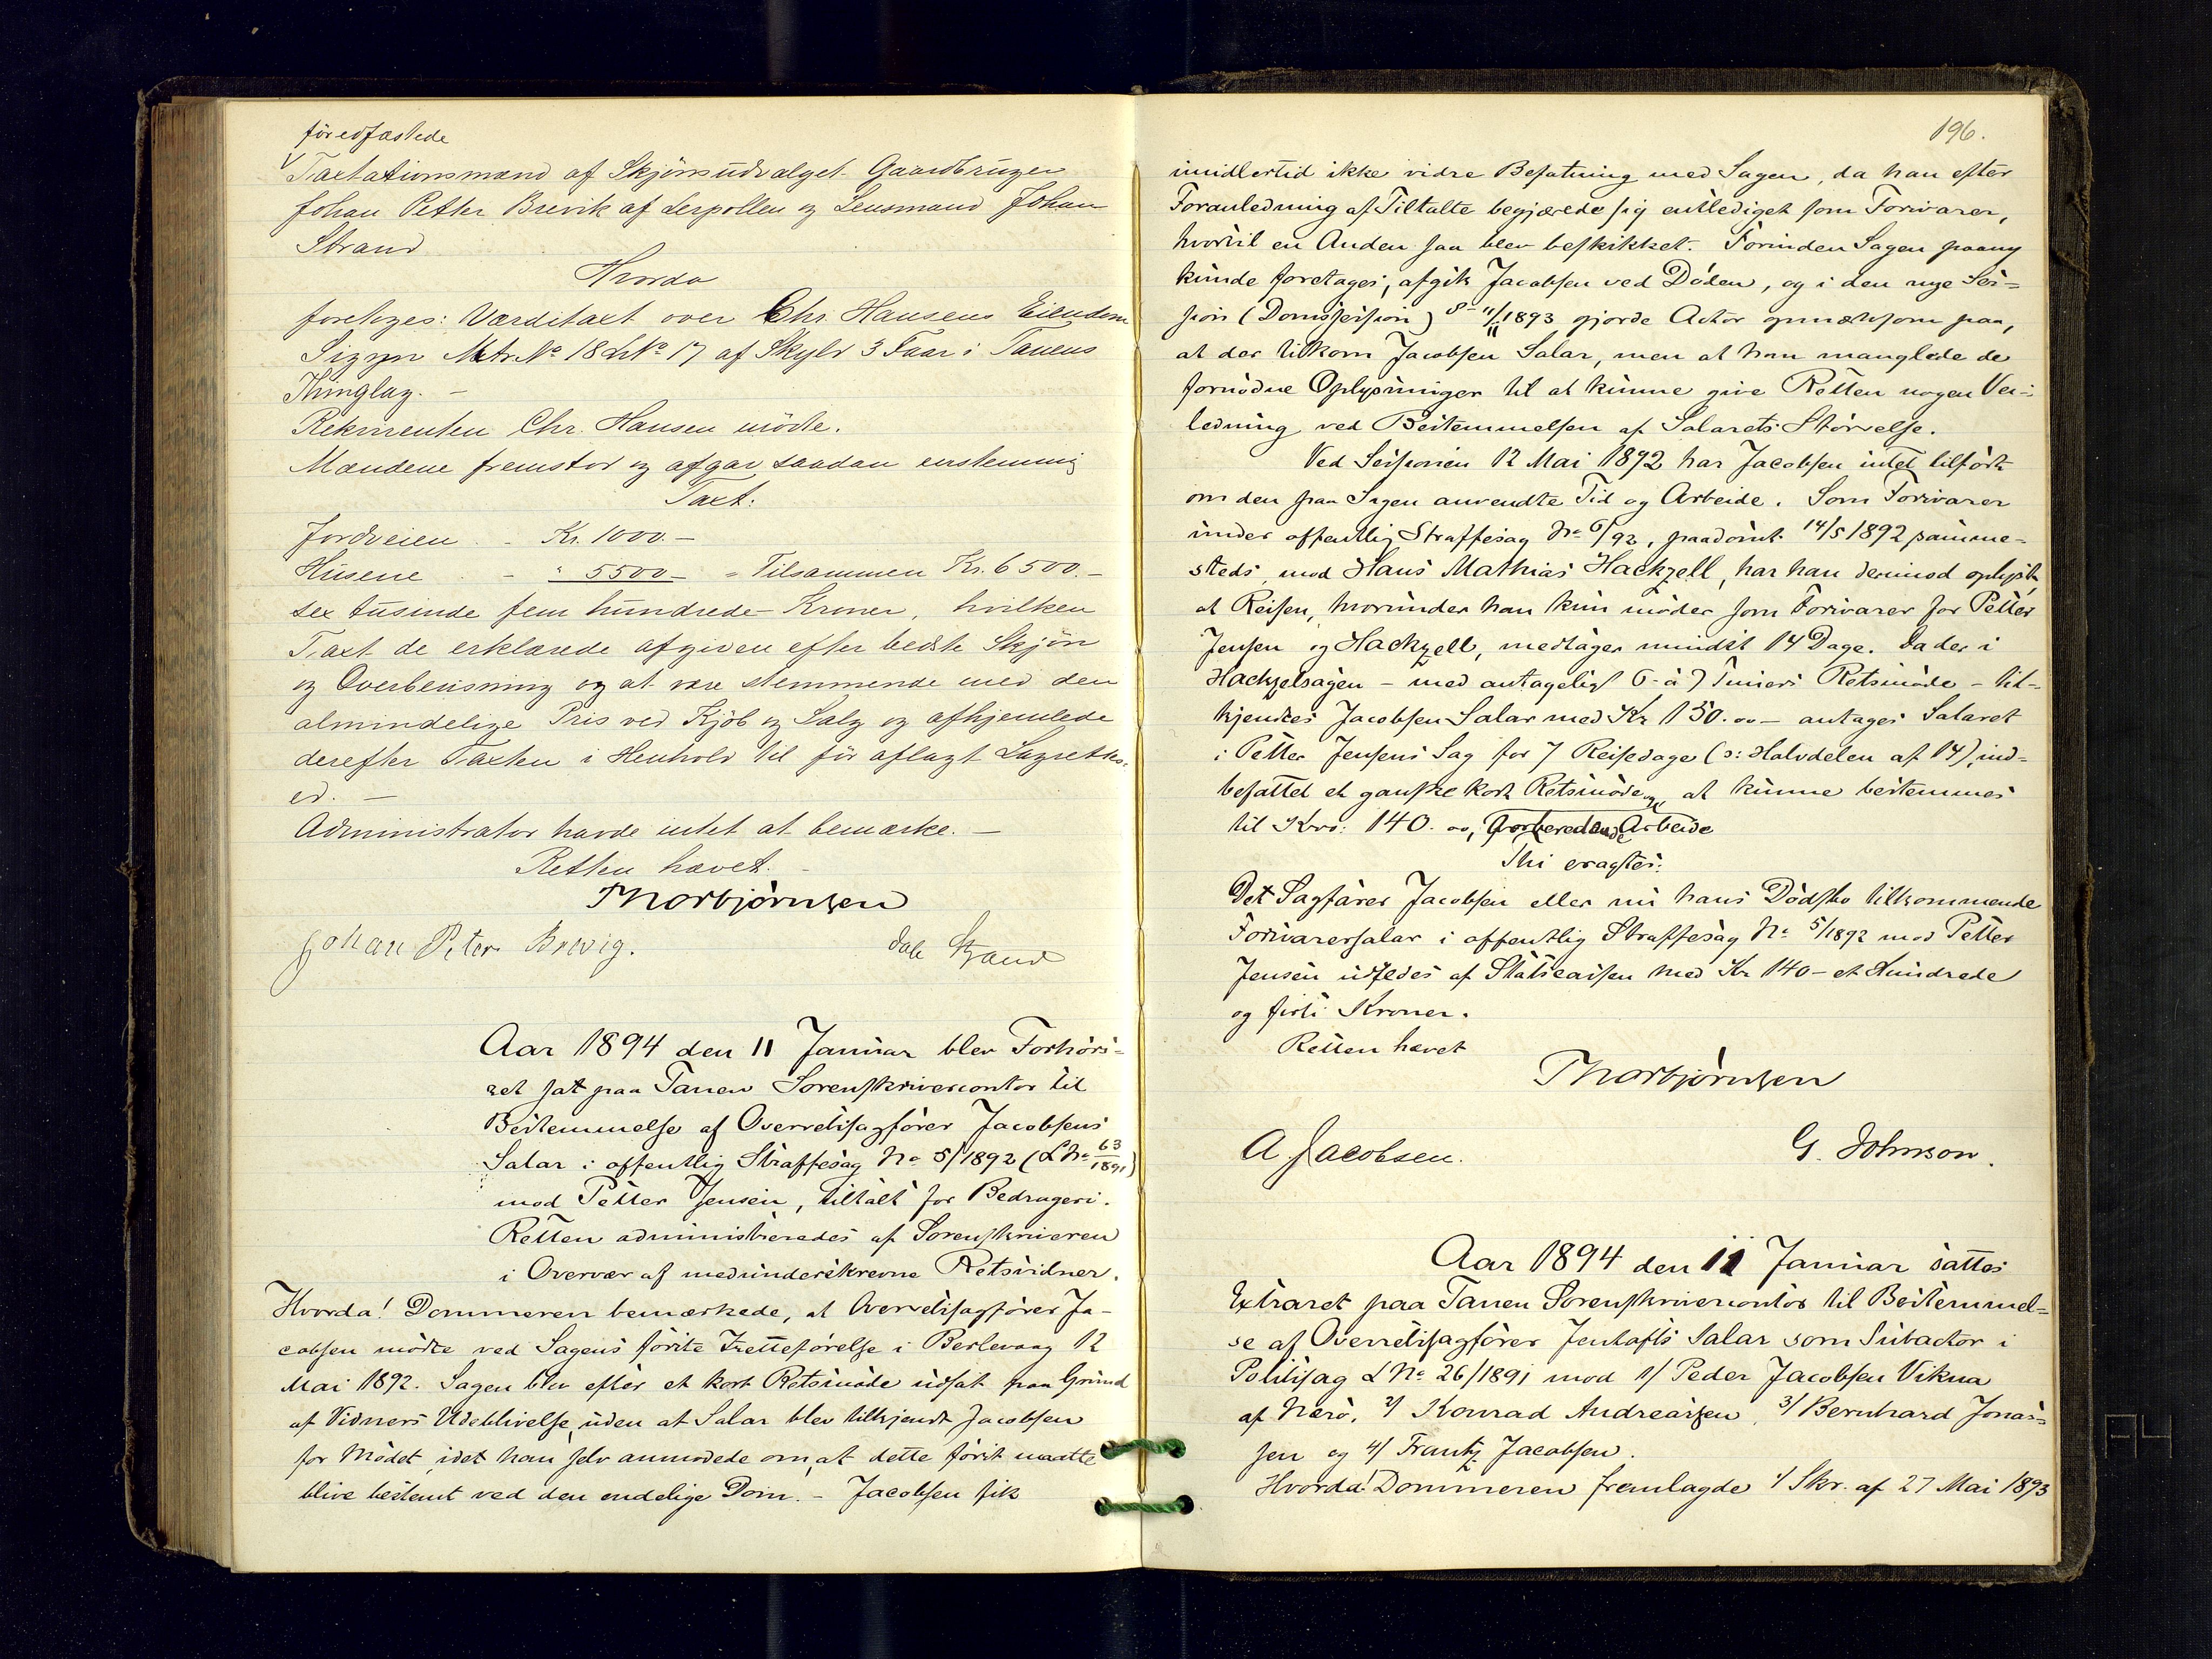 för edfæstede
Taxtationsmænd af Skjönsudvalget Gaardbruger
Johan Petter Brevik af Lerpollen og Lensmand Johan
Strand
Hvorda
foretoges: Værditaxt over Chr. Hansens Eiendom
Matr No 18 LNo 17 af Skyld 3 Faar i Tanens
Thinglag. –
Rekvirenten Chr. Hansen mödte.
Mændene fremstod og afgav saadan enstemmig
Taxt:
Jordveien . - Kr. 1000. –
Husene . - " 5500 – = Tilsammen Kr. 6500. –
sex tusinde fem hundrede Kroner, hvilken
Taxt de erklærede afgiven efter bedste Skjön
og Overbevisning og at være stemmende med den
almindelige Pris ved Kjöb og Salg og afhjemlede
derefter Taxten i Henhold til för aflagt Lagrettes-
ed. –
Administrator havde intet at bemærke. –
Retten hævet. –
Thorbjörnsen
Johan Peter Brevig.
Strand
Aar 1894 den 11 Januar blev Forhörs-
ret sat paa Tanen Sorenskrivercontor til
Bestemmelse af Overretssagförer Jacobsens
Salar i offentlig Straffesag No 5/1892 (LNo 63/1891)
mod Petter Jensen, tiltalt for Bedrageri.
Retten administreredes af Sorenskriveren
i Overvær af medunderskrevne Retsvidner.
Hvorda! Dommeren bemærkede, at Overretssagförer Ja-
cobsen mödte ved Sagens förste Tretteförelse i Berlevaag 12
Mai 1892. Sagen blev efter et kort Retsmöde udsat paa Grund
af Vidners Udeblivelse, uden at Salar blev tilkjendt Jacobsen
for Mödet, idet han selv anmodede om, at dette först maatte
blive bestemt ved den endelige Dom. – Jacobsen fik
196.
imidlertid ikke vidre Befatning med Sagen, da han efter
Foranledning af Tiltalte begjærede sig entlediget som Forsvarer,
hvortil en Anden saa blev beskikket. Forinden Sagen paany
kunde foretages, afgik Jacobsen ved Döden, og i den nye Ses-
sion (Domssession) 8-11/11 1893 gjorde Actor opmærksom paa,
at der tilkom Jacobsen Salar, men at han manglede de
fornödne Oplysninger til at kunne give Retten nogen Vei-
ledning ved Bestemmelsen af Salarets Störrelse.
Ved Sessionen 12 Mai 1892 har Jacobsen intet tilfört
om den paa Sagen anvendte Tid og Arbeide. Som Forsvarer
under offentlig Straffesag No 6/92, paadömt 14/5 1892 samme-
steds, mod Hans Mathias Hackzell, har han derimod oplyst,
at Reisen, hvorunder han kun möder som Forsvarer for Petter
Jensen og Hackzell, medtager mindst 14 Dage. Da der i
Hackzelsagen – med antagelig 6 à 7 Timers Retsmöde – til-
kjendtes Jacobsen Salar med Kr 150.00 – antages Salaret
i Petter Jensens Sag for 7 Reisedage (ɔ: Halvdelen af 14), ind-
befattet et ganske kort Retsmöde og at kunne bestemmes
til Kro: 140.00, forberedende Arbeide
Thi eragtes:
Det Sagförer Jacobsen eller nu hans Dödsbo tilkommende
Forsvarersalar i offentlig Straffesag No 5/1892 mod Petter
Jensen udredes af Statscassen med Kr 140 – et Hundrede
og firti Kroner.
Retten hævet
Thorbjörnsen
A. Jacobsen. G. Johnson.
Aar 1894 den 11 Januar sattes
Extraret paa Tanen Sorenskrivercontor til Bestemmel-
se af Overretssagförer Jenhafts Salar som Subactor i
Politisag LNo 26/1891 mod 1/ Peder Jacobsen Vikna
af Nærö, 2/ Konrad Andreassen, 3/ Bernhard Jonas-
sen og 4/ Frantz Jacobsen.
Hvorda! Dommeren fremlagde 1/ Skr. af 27 Mai 1893